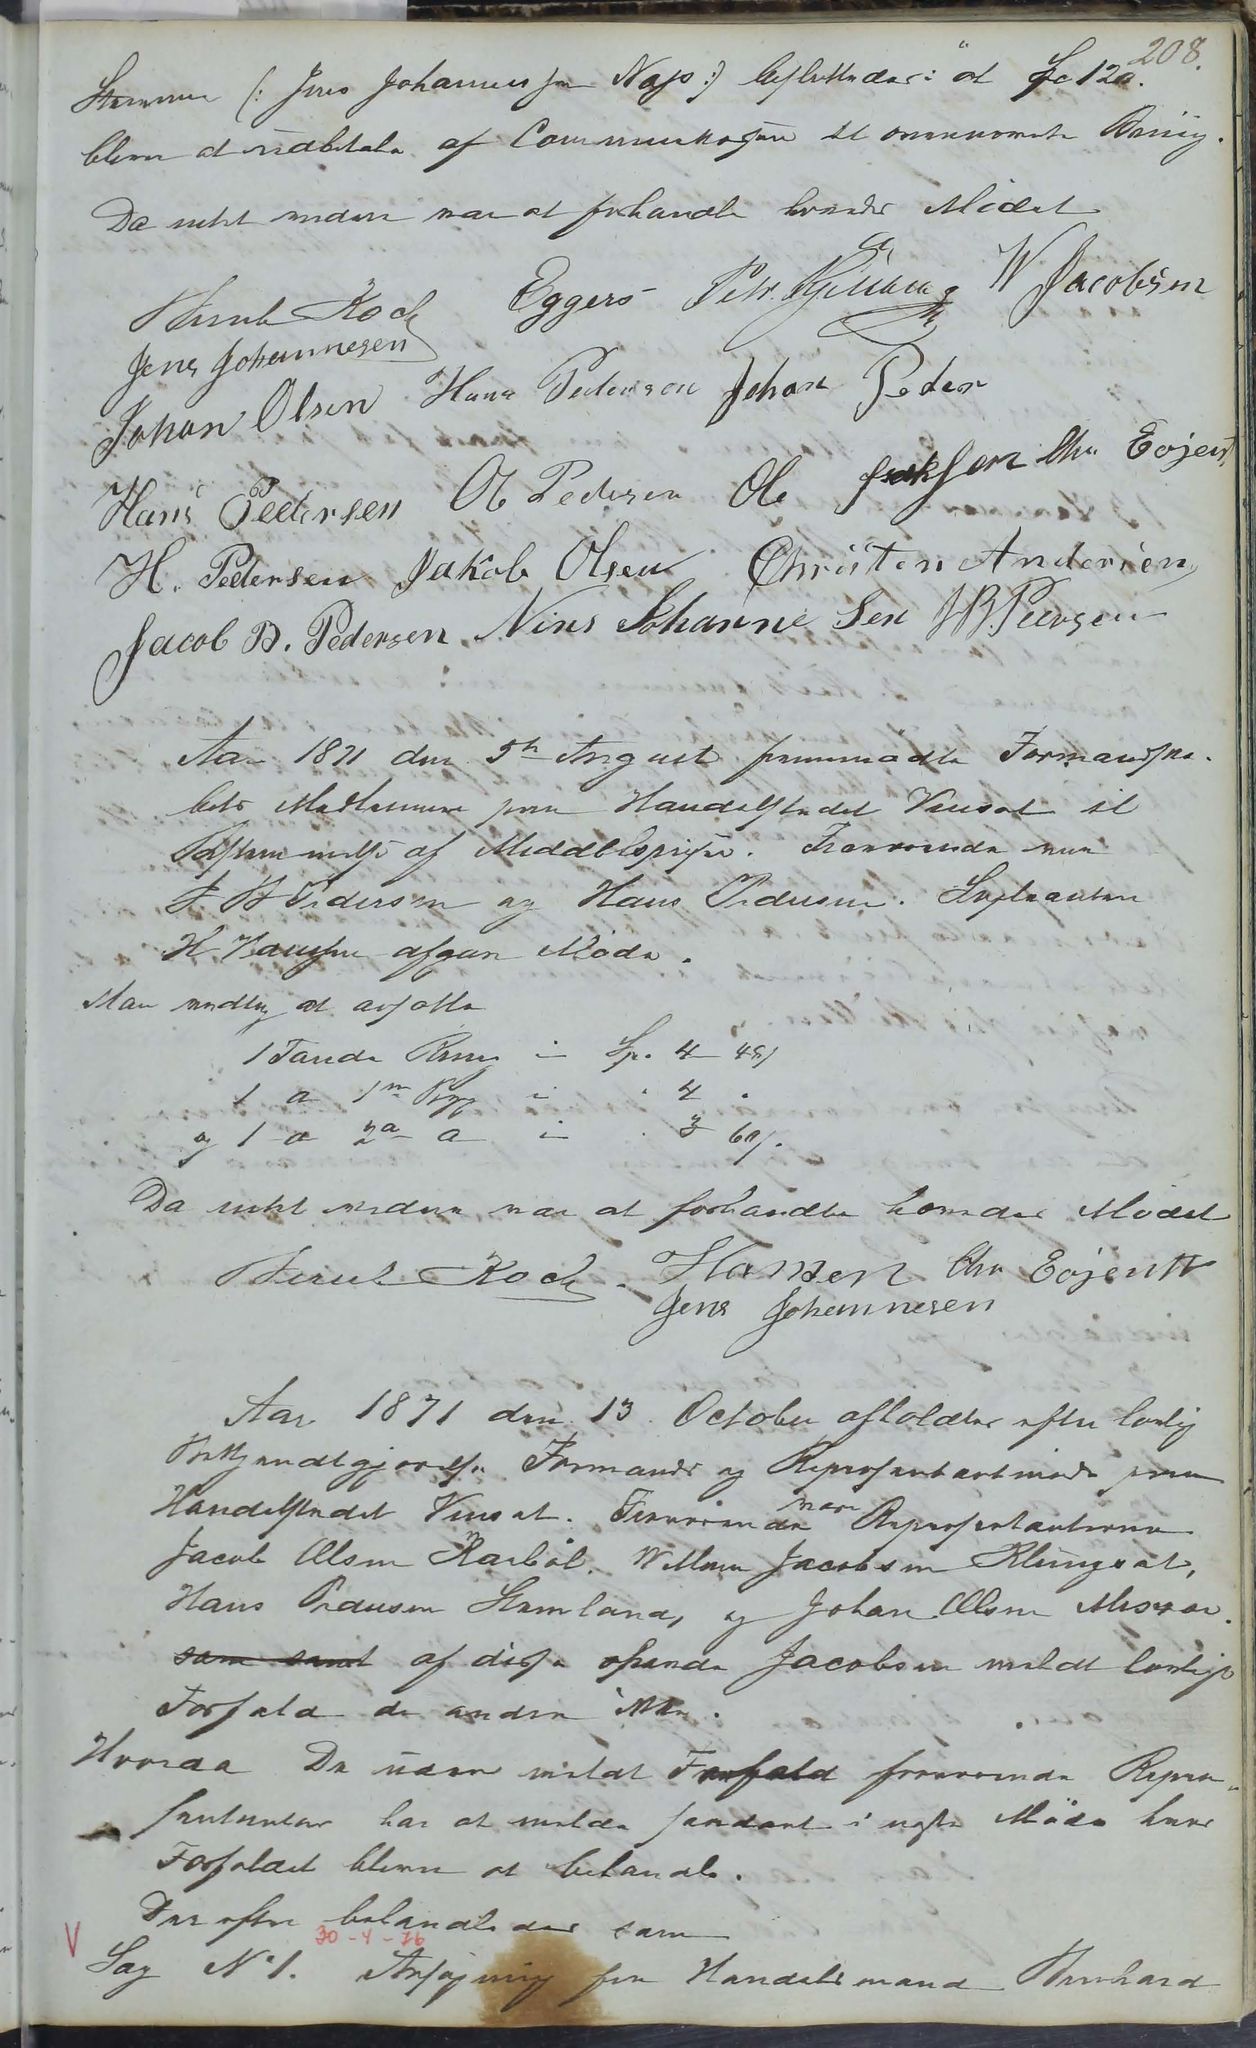 208.
Stemmer (: Jens Johannesen Naps :) besluttedes: at Sp 120.
bliver at udbetale af Communekassen til ovennævnte
Da intet videre var at forhandle hævedes Mödet
Bernh Koch Eggers Petr. W Jacobsen
Jens Johannesen
Johan Olsen Hans Pedersen Johan Peder
Hans Pedersen Ol Pedersen Ole Chr Evjenth
H. Pedersen Jakob Olsen Christen Andersen
Jacob B. Pedersen Nins Johanne Sen
Aar 1871 den 5te August fremmödte Formandska-
bets Medlemmer paa Handelstedet til
af Middelspriser. Fraværende var
J B Pedersen og Hans Pedersen. Suplianten
H Hansen afgav Möde.
Man vedtog at ansætte
1 Tønde Rug i Sp. 4 48/
1 a 1ma Byg i " 4 "
og 1 a 2da a i " 3 60/.
Da intet videre var at forhandle hævedes Mödet
Bernh Koch. Hansen Chr Evjenth
Jens Johannesen
Aar 1871 den 13 October afholdtes efter lovlig
Bekjendtgjørelse Formands og Representantmøde paa
Handelstedet Fraværende vare Representanterne
Jacob Olsen Willum Jacobsen
Hans Pedersen Stemland, og Johan Olsen
som samt af disse Jacobsen meldt lovligt
Forfald de andre ikke.
Hvorda De uden meldt Forfald fraværende Repræ-
sentanter har at melde saadant i neste Möde hvor
Forfaldet bliver at behandle.
Derefter behandledes som
V 30-4-76
Sag No 1. Ansøgning fra Handelsmand Bernhard